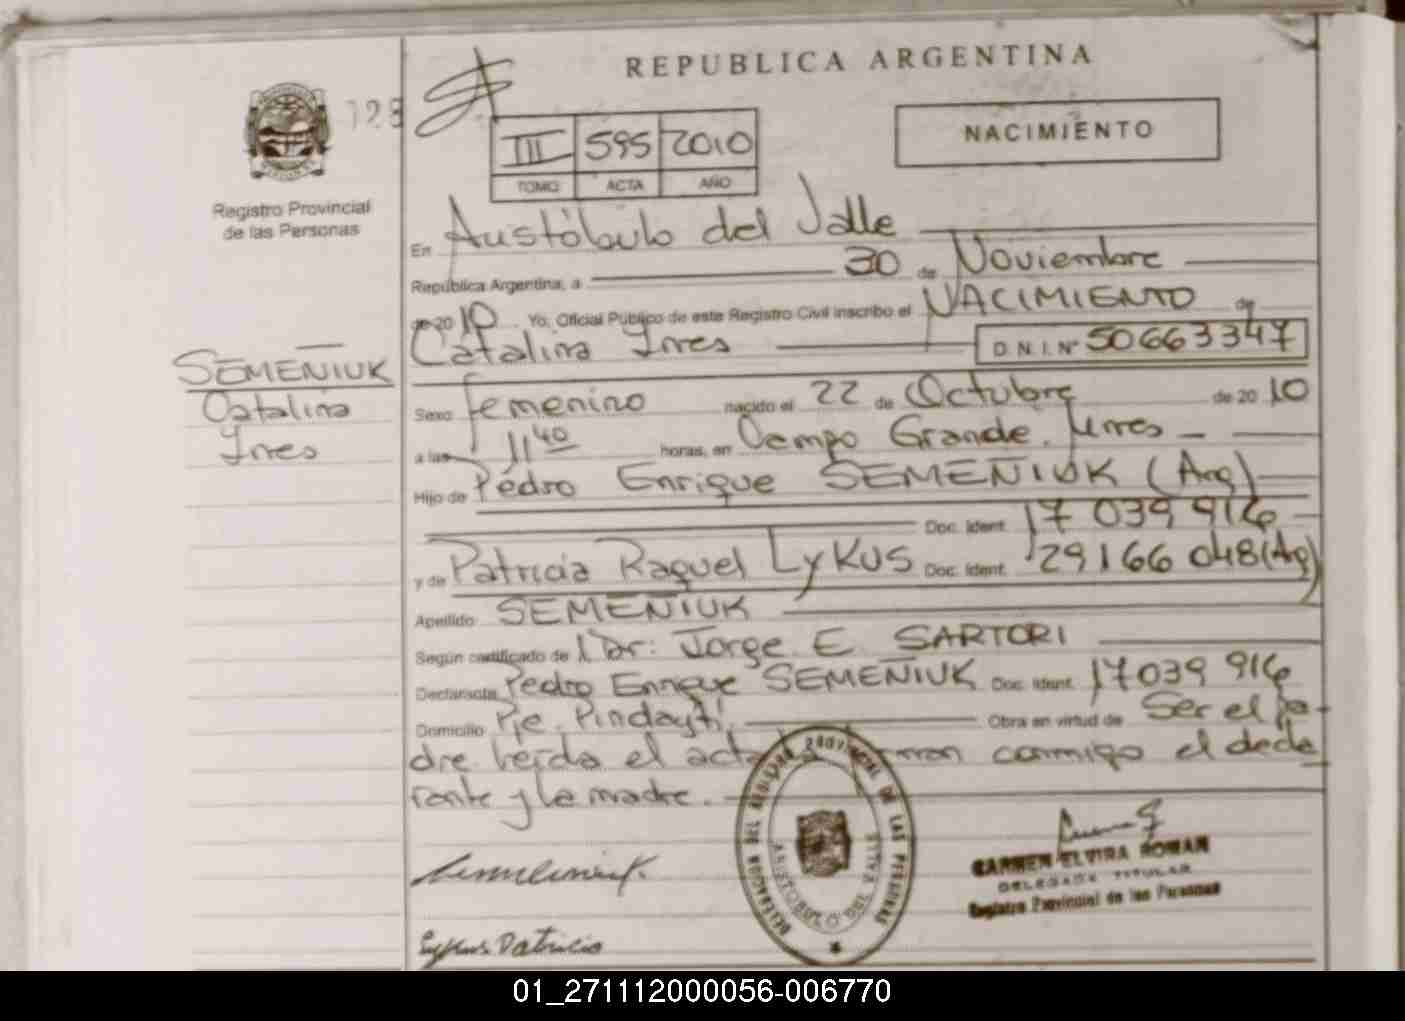 REPUBLICA ARGENTINA
128
III 595 2010
TOMO ACTA AÑO
NACIMIENTO
Registro Provincial
de las Personas
En Aristóbulo del Valle
República Argentina, a 30 de Noviembre
de 20 10 Yo, Oficial Público de este Registro Civil inscribo el NACIMIENTO de
Catalina Ines D.N.I. Nº 50663347
SEMENIUK
Catalina
Ines
Sexo femenino nacido el 22 de Octubre de 20 10
a las 11 40 horas, en Campo Grande.
Hijo de Pedro Enrique SEMENIUK (Arg)
Doc. Ident. 17 039 916
y de Patricia Raquel LyKUS Doc. Ident. 29166 048 (Arg)
Apellido SEMENIUK
Según certificado de Dr: Jorge E. SARTORI
Declarante Pedro Enrique SEMENIUK Doc. Ident. 17039 916
Domicilio Pje. Pindaytí. Obra en virtud de Ser el pa-
dre leída el acta firman conmigo el decla
rante y la madre.
DELEGACION DEL REGISTRO PROVINCIAL DE LAS PERSONAS
ARISTOBULO DEL VALLE
CARMEN ELVIRA ROMAN
DELEGADA TITULAR
Registro Provincial de las Personas
Lykus Patricia
01_271112000056-006770